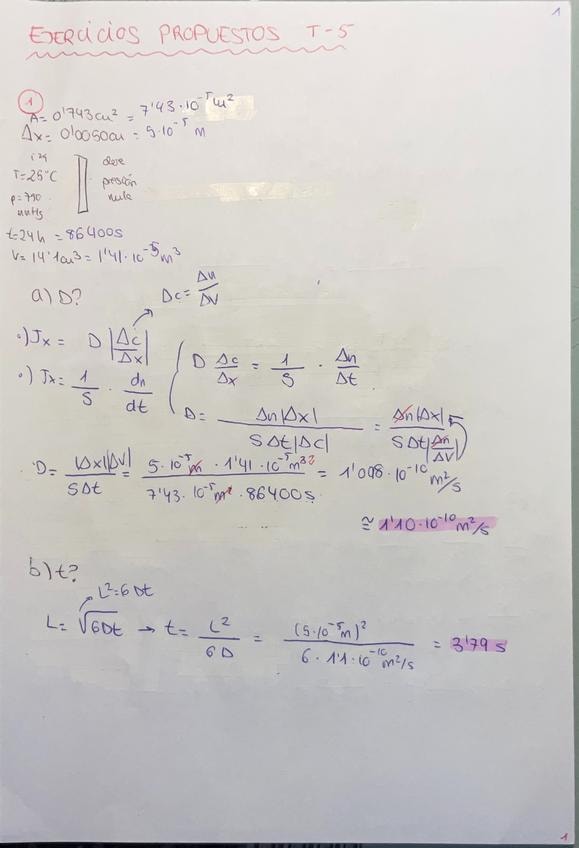 1
EJERCICIOS PROPUESTOS T-5
1
A = 0'743 cm² = 7'43·10⁻⁵ m²
Δx = 0'0050cm = 5·10⁻⁵ m
T=25°C
p=790
mmHg
presión
nula
t=24h = 86400s
V= 14'1cm³ = 1'41·10⁻⁵ m³
a) D?
Δc = Δn/ΔV
·) Jx = D |Δc/Δx|
·) Jx = 1/S · dn/dt
D Δc/Δx = 1/S · Δn/Δt
D = Δn|Δx| / SΔt|Δc| = Δn|Δx| / SΔt|Δn/ΔV|
D = |Δx||ΔV| / SΔt = 5·10⁻⁵m · 1'41·10⁻⁵m³² / 7'43·10⁻⁵m² · 86400s = 1'098·10⁻¹⁰ m²/s
≅ 1'10·10⁻¹⁰ m²/s
b) t?
L²=6Dt
L = √6Dt → t = L²/6D = (5·10⁻⁵m)² / 6·1'1·10⁻¹⁰m²/s = 3'79 s
1